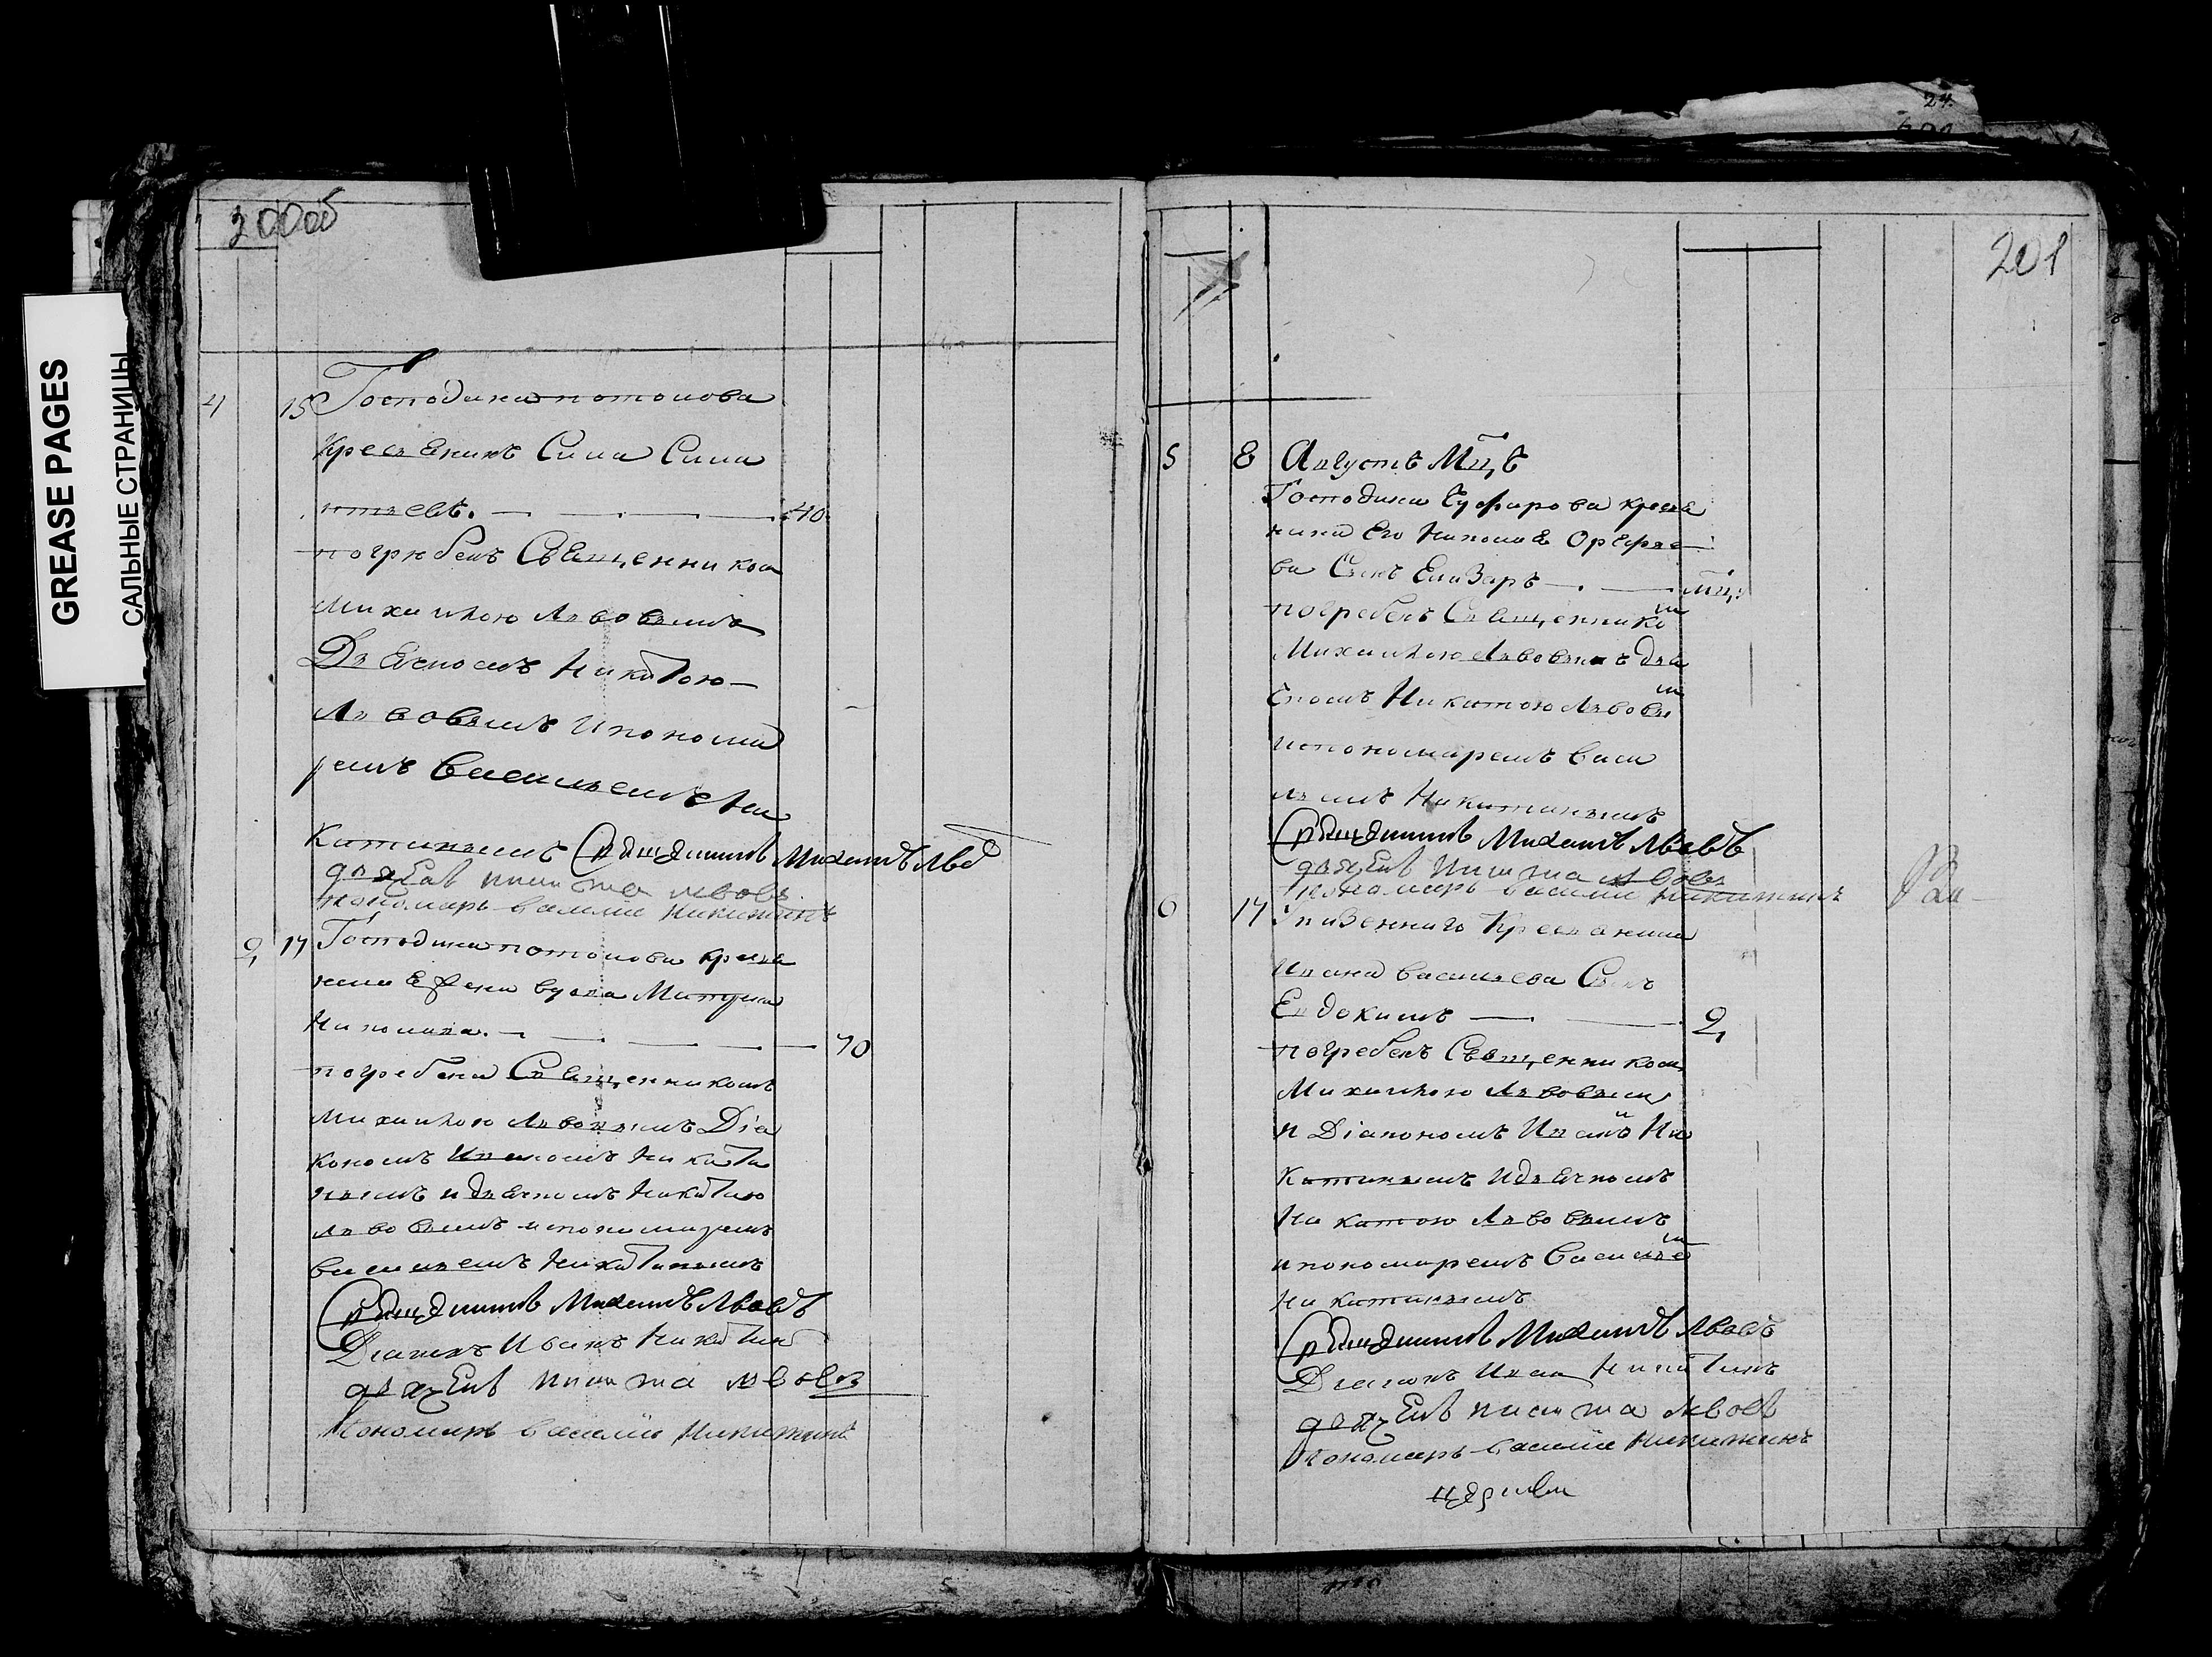 GREASE PAGES
САЛЬНЫЕ СТРАНИЦЫ
200об
4 15 Господина потолова
кресьѣнинъ Сила Сила
нтьевъ. 40
погрѣбенъ Свѣщенником
михаилою Львовымъ
Дьѣчкомъ Никитою
Львовымъ и понома
ремъ Васильемъ Ни
китинымъ Священникъ Михаилъ Льво
дьячекъ никита львовъ
пономарь василiи никитинъ
2 17 Господина потолова кресья
нина вдова
Николаева. 70
погребена Священникомъ
михаилою Львовымъ Дiа
кономъ Иваномъ Никити
нымъ и дьѣчкомъ Никитою
Львовымъ и пономаремъ
васильемъ Никитинымъ
Священникъ Михаилъ Львовъ
Дiаконъ Иванъ Никитин
дьячекъ никита львовъ
Пономарь василiи Никитинъ
24
201
5 8 Августъ Мцъ
Господина кресьѣ
нина Его Николая
ва Сынъ Елизаръ мц:
погребенъ Священником
Михаилою Львовымъ дьѣ
чкомъ Никитою Львовым
и пономаремъ Васи
льемъ Никитинымъ
Священникъ Михаилъ Львовъ
дьячекъ Никита львовъ
пономарь василiи никитинъ
6 17 Кресьянина
Ивана васильева Сынъ
Евдокимъ 2
погребенъ Священником
Михаилою Львовым
и Дiакономъ Иваном Ни
китинымъ и дьѣчкомъ
Никитою Львовымъ
и пономаремъ Василье
Никитинымъ
Священникъ Михаилъ Львовъ
Дiаконъ Иван Никитинъ
дьячекъ никита львовъ
Пономарь василiи никитинъ
церкви